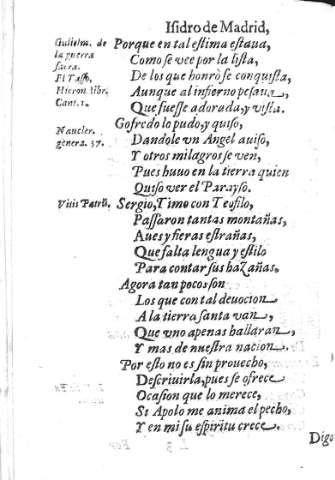 Isidro de Madrid,
Gulielm. de
la guerra
sacra.
El Tasso,
Hieron. libr.
Cant. 1.
Porque en tal estima estaua,
Como se vee por la lista,
De los que honrò se conquista,
Aunque al infierno pesaua,
Que fuesse adorada, y vista.
Naucler.
genera. 37.
Gofredo lo pudo, y quiso,
Dandole vn Angel auiso,
Y otros milagros se ven,
Pues huuo en la tierra quien
Quiso ver el Parayso.
Viiis Patrũ.
Sergio, Timo con Teofilo,
Passaron tantas montañas,
Aues y fieras estrañas,
Que falta lengua y estilo
Para contar sus hazañas.
Agora tan pocos son
Los que con tal deuocion
A la tierra santa van,
Que vno apenas hallaran,
Y mas de nuestra nacion.
Por esto no es sin prouecho,
Descriuirla, pues se ofrece
Ocasion que lo merece,
Si Apolo me anima el pecho,
Y en mi su espiritu crece.
Digo